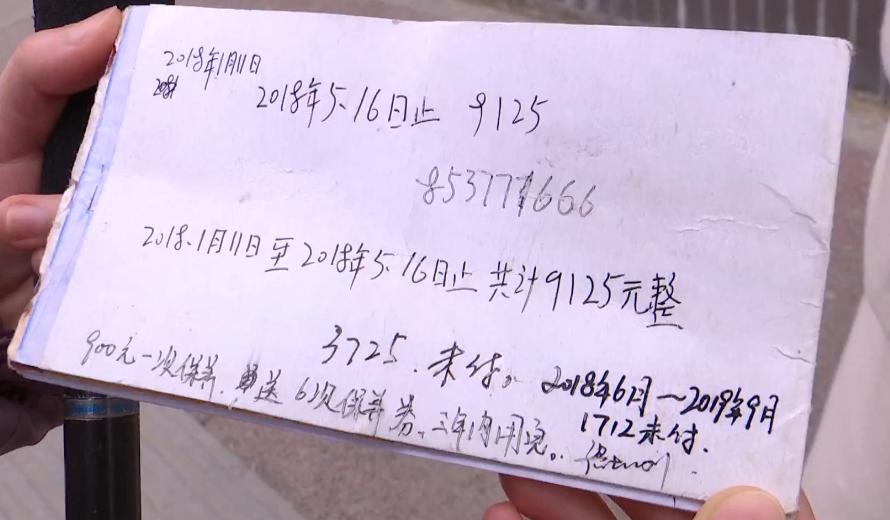 2018年1月11日
2018年5.16日止 9125
2018.1月11日至2018年5.16日止 共计9125元整
3725.未付。
2018年6月～2019年9月
1712未付.
900元一次保养. 送6次保养券、三年内用完。